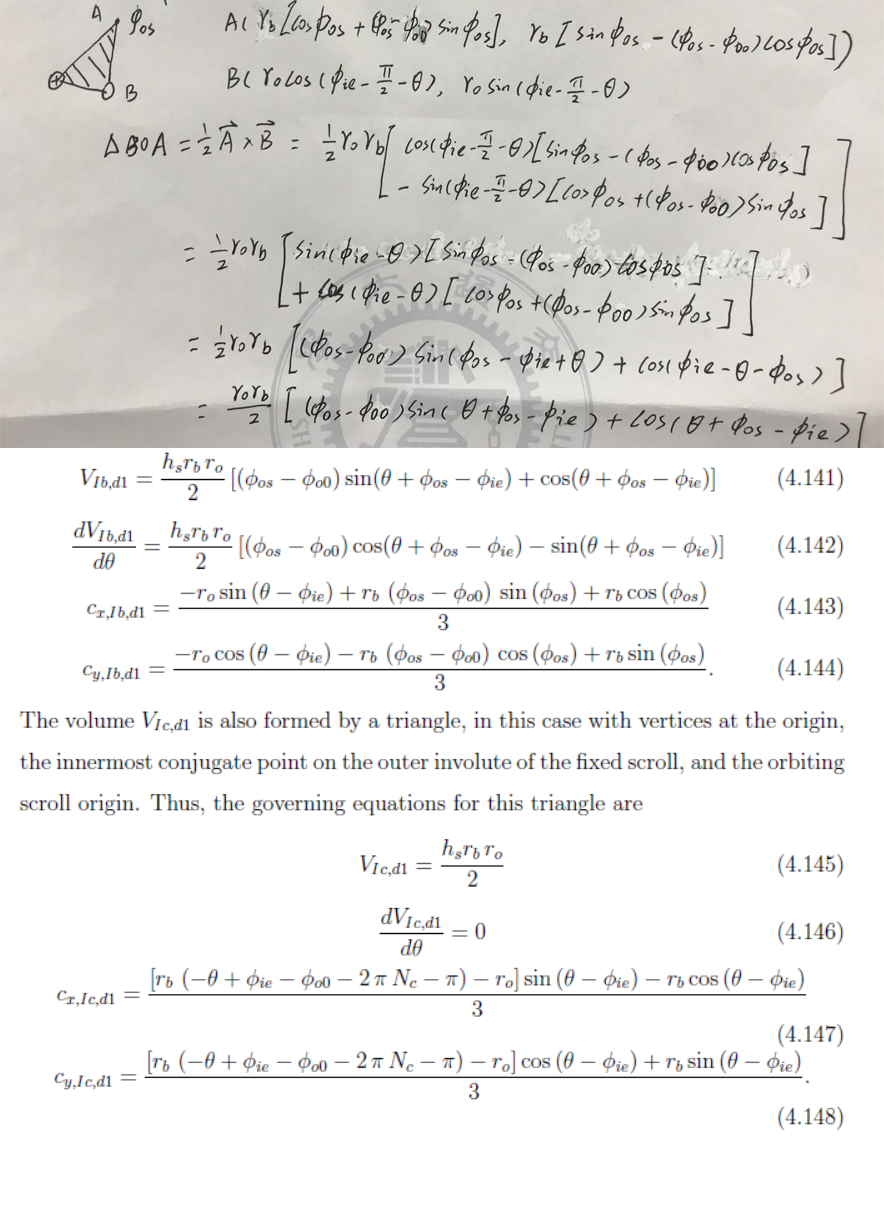 A φos A( rb[cosφos + (φos-φo0) sinφos], rb[sinφos - (φos-φo0)cosφos])
B B( rocos(φie-π/2-θ), ro sin(φie-π/2-θ)
ΔBOA = 1/2 A⃗ × B⃗ = 1/2 rorb[ cos(φie-π/2-θ)[sinφos-(φos-φo0)cosφos]
- sin(φie-π/2-θ)[cosφos+(φos-φo0)sinφos] ]
= 1/2 rorb [sin(φie-θ)[sinφos-(φos-φo0)cosφos]
+ cos(φie-θ)[cosφos+(φos-φo0)sinφos] ]
= 1/2 rorb [(φos-φo0) sin(φos-φie+θ) + cos(φie-θ-φos)]
= rorb/2 [(φos-φo0)sin(θ+φos-φie)+cos(θ+φos-φie)]
V_{Ib,d1} = h_s r_b r_o / 2 [(φ_{os} − φ_{o0}) sin(θ + φ_{os} − φ_{ie}) + cos(θ + φ_{os} − φ_{ie})] (4.141)
dV_{Ib,d1}/dθ = h_s r_b r_o / 2 [(φ_{os} − φ_{o0}) cos(θ + φ_{os} − φ_{ie}) − sin(θ + φ_{os} − φ_{ie})] (4.142)
c_{x,Ib,d1} = −r_o sin (θ − φ_{ie}) + r_b (φ_{os} − φ_{o0}) sin (φ_{os}) + r_b cos (φ_{os}) / 3 (4.143)
c_{y,Ib,d1} = −r_o cos (θ − φ_{ie}) − r_b (φ_{os} − φ_{o0}) cos (φ_{os}) + r_b sin (φ_{os}) / 3 . (4.144)
The volume V_{Ic,d1} is also formed by a triangle, in this case with vertices at the origin,
the innermost conjugate point on the outer involute of the fixed scroll, and the orbiting
scroll origin. Thus, the governing equations for this triangle are
V_{Ic,d1} = h_s r_b r_o / 2 (4.145)
dV_{Ic,d1}/dθ = 0 (4.146)
c_{x,Ic,d1} = [r_b (−θ + φ_{ie} − φ_{o0} − 2 π N_c − π) − r_o] sin (θ − φ_{ie}) − r_b cos (θ − φ_{ie}) / 3
(4.147)
c_{y,Ic,d1} = [r_b (−θ + φ_{ie} − φ_{o0} − 2 π N_c − π) − r_o] cos (θ − φ_{ie}) + r_b sin (θ − φ_{ie}) / 3 .
(4.148)